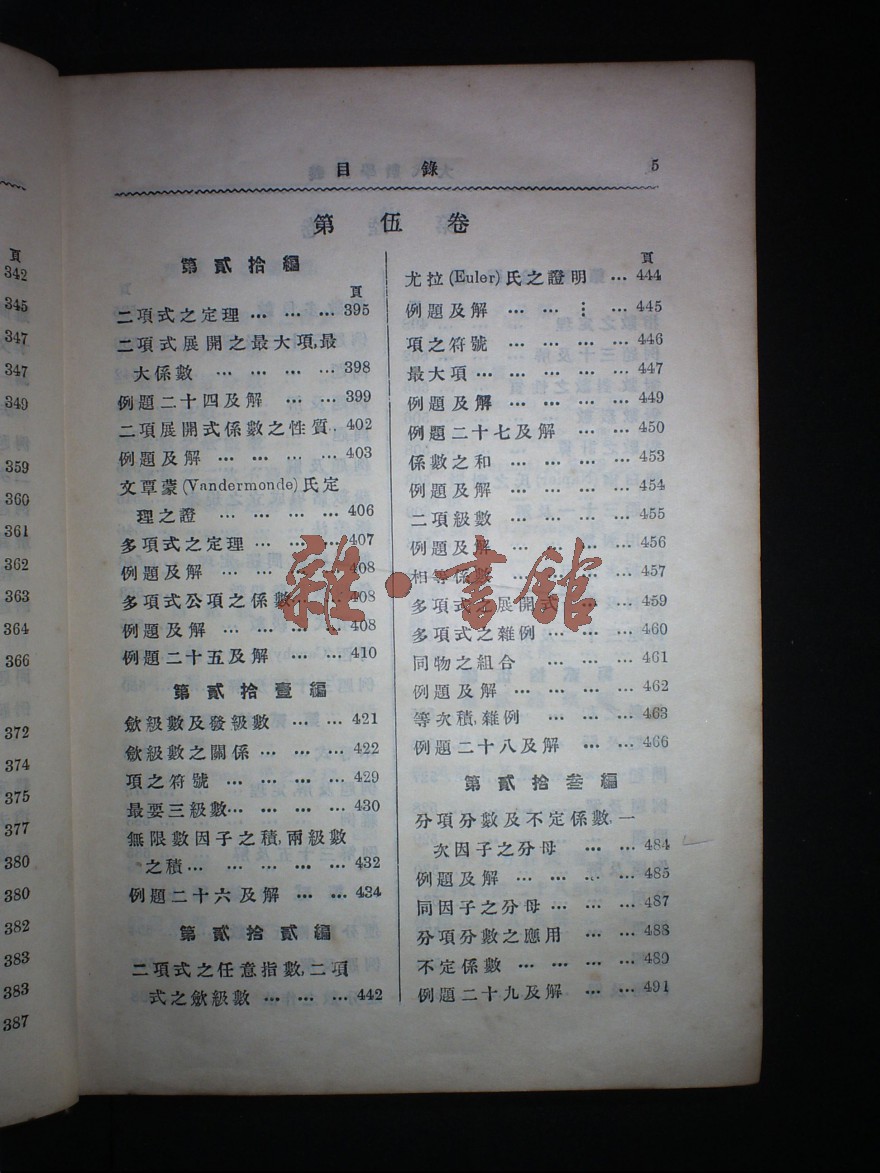 頁
342
345
347
347
349
359
360
361
362
363
364
366
372
374
375
377
380
380
382
383
383
387
目錄 5
第伍卷
第貳拾編
頁
二項式之定理 … … … 395
二項式展開之最大項,最
大係數 … … … … 398
例題二十四及解 … … 399
二項展開式係數之性質‥ 402
例題及解 … … … … 403
文覃蒙(Vandermonde)氏定
理之證 … … … … 406
多項式之定理 … … … 407
例題及解 … … … … 408
多項式公項之係數 … … 408
例題及解 … … … … 408
例題二十五及解 … … 410
第貳拾壹編
斂級數及發級數 … … 421
斂級數之關係 … … … 422
項之符號 … … … … 429
最要三級數 … … … … 430
無限數因子之積,兩級數
之積 … … … … … 432
例題二十六及解 … … 434
第貳拾貳編
二項式之任意指數,二項
式之斂級數 … … … 442
頁
尤拉(Euler)氏之證明 … 444
例題及解 … … … … 445
項之符號 … … … … 446
最大項 … … … … … 447
例題及解 … … … … 449
例題二十七及解 … … 450
係數之和 … … … … 453
例題及解 … … … … 454
二項級數 … … … … 455
例題及解 … … … … 456
相等係數 … … … … 457
多項式之展開式 … … 459
多項式之雜例 … … … 460
同物之組合 … … … 461
例題及解 … … … … 462
等次積,雜例 … … … 463
例題二十八及解 … … 466
第貳拾叁編
分項分數及不定係數,一
次因子之分母 … … 484
例題及解 … … … … 485
同因子之分母 … … … 487
分項分數之應用 … … 488
不定係數 … … … … 489
例題二十九及解 … … 491
雜·書館